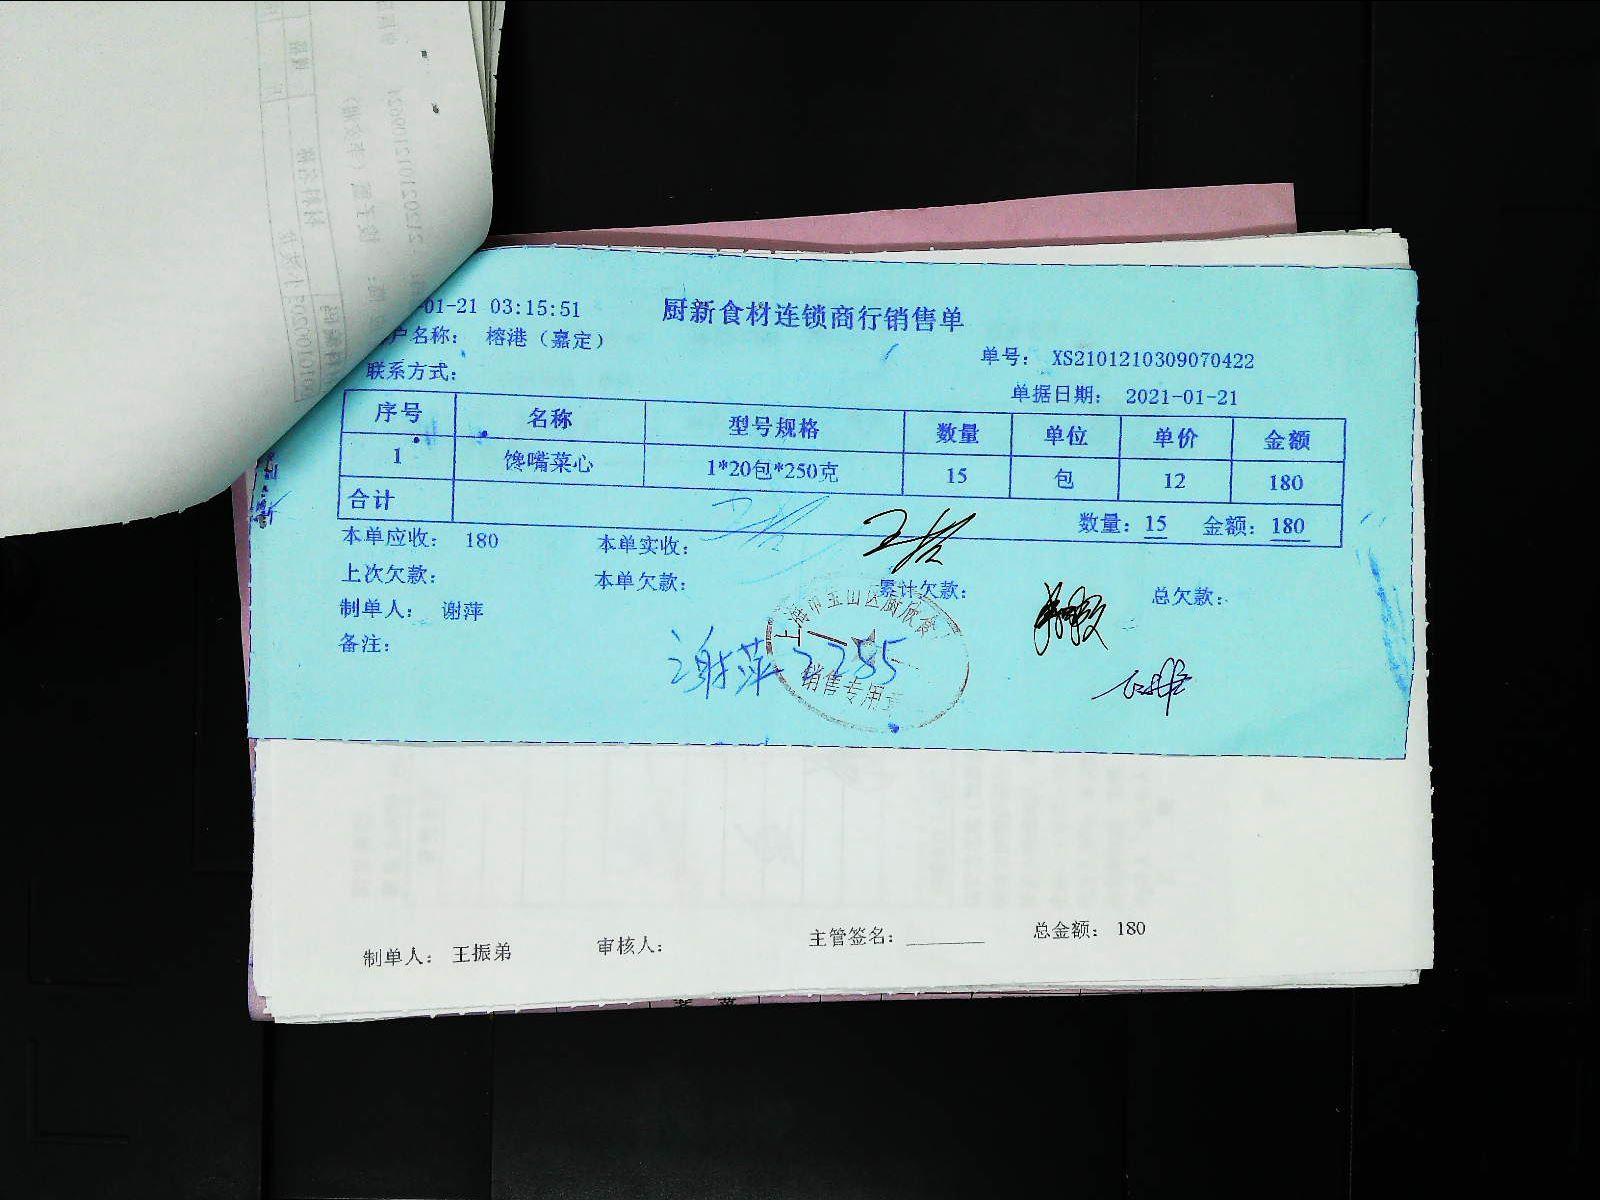 01-21 03:15:51
厨新食材连锁商行销售单
户名称： 榕港（嘉定）
单号： XS2101210309070422
联系方式：
单据日期： 2021-01-21
序号 名称 型号规格 数量 单位 单价 金额
1 馋嘴菜心 1*20包*250克 15 包 12 180
合计 数量：15 金额：180
本单应收： 180 本单实收：
上次欠款： 本单欠款： 累计欠款： 总欠款：
制单人： 谢萍
备注：
谢萍 2255
销售专用章
制单人： 王振弟 审核人： 主管签名： 总金额： 180